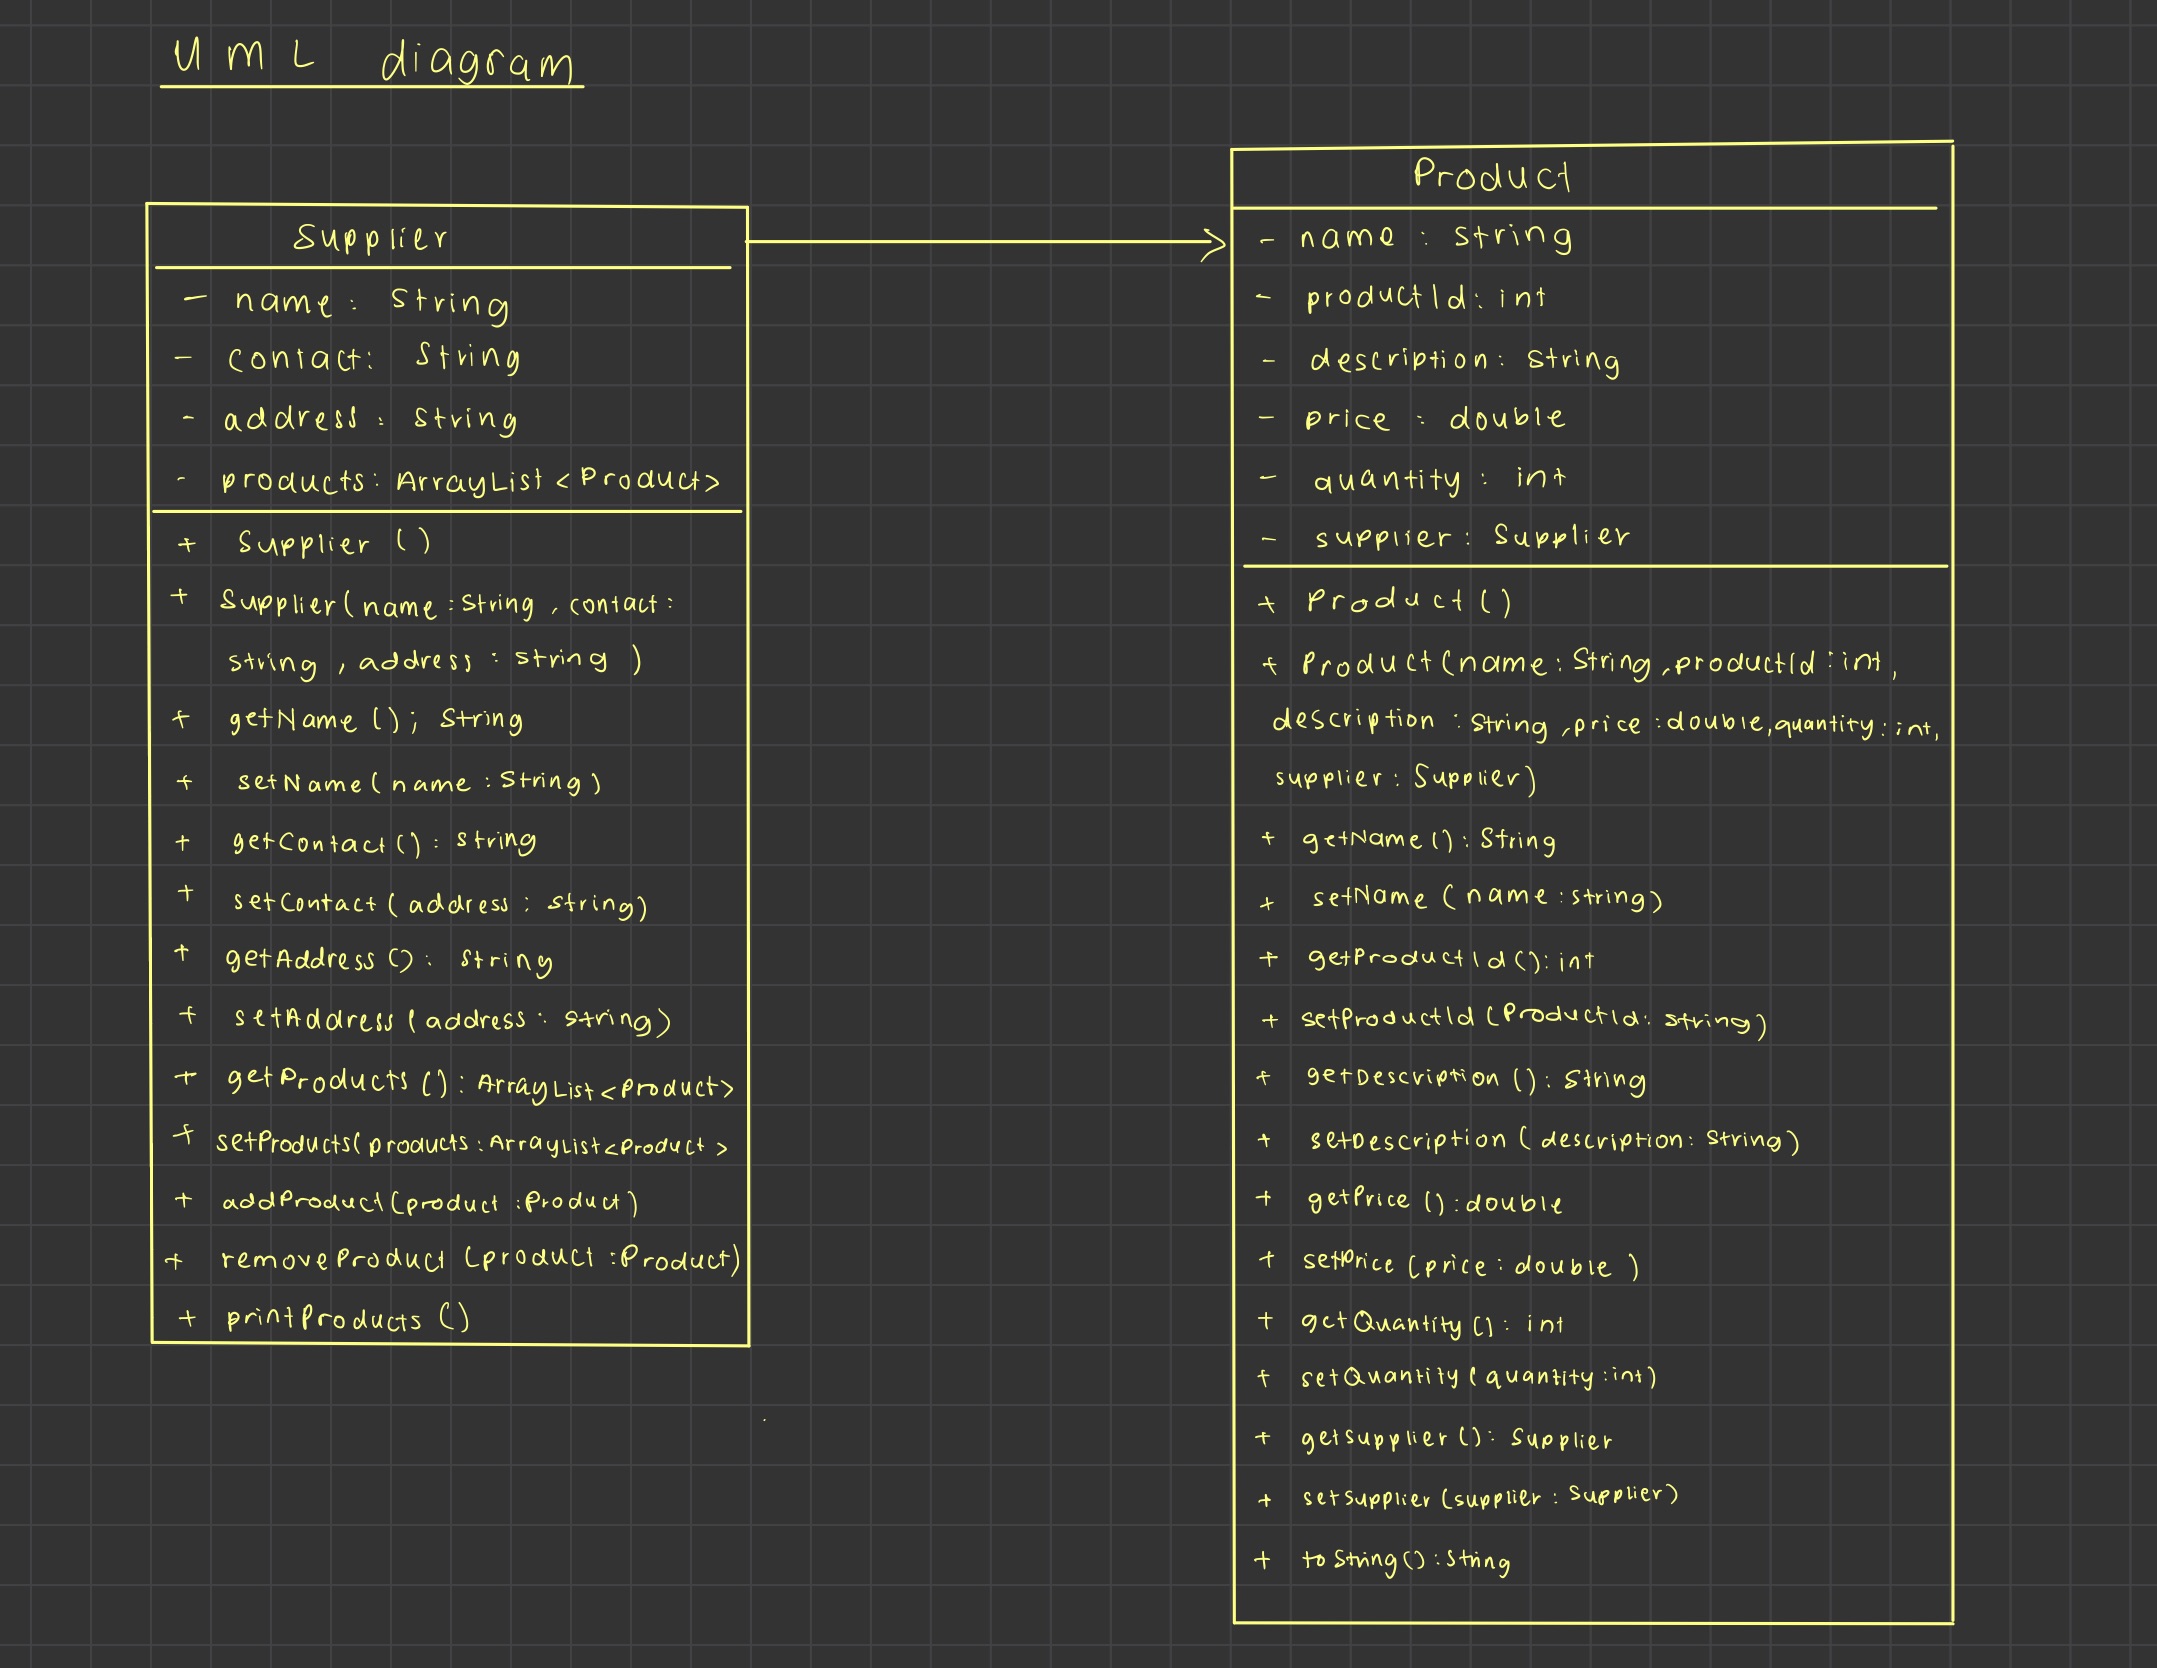 UML diagram
Supplier
- name : String
- contact : String
- address : String
- products : ArrayList <Product>
+ Supplier ()
+ Supplier(name : String , contact :
string , address : string )
+ getName (); String
+ setName ( name : String )
+ getContact() : string
+ setContact ( address : string)
+ getAddress () : String
+ setAddress ( address : string)
+ getProducts () : ArrayList <Product>
+ setProducts( products : ArrayList<Product >
+ addProduct(product : Product)
+ removeProduct (product : Product)
+ printProducts ()
Product
- name : string
- productId : int
- description : string
- price : double
- quantity : int
- supplier : Supplier
+ Product ()
+ Product (name : String , productId : int ,
description : string , price : double, quantity : int,
supplier : Supplier)
+ getName () : String
+ setName (name : string)
+ getProductId () : int
+ setProductId (ProductId : string)
+ getDescription () : String
+ setDescription ( description : String)
+ getPrice () : double
+ setPrice (price : double )
+ getQuantity () : int
+ setQuantity ( quantity : int)
+ getSupplier () : Supplier
+ setSupplier (supplier : Supplier)
+ toString () : String